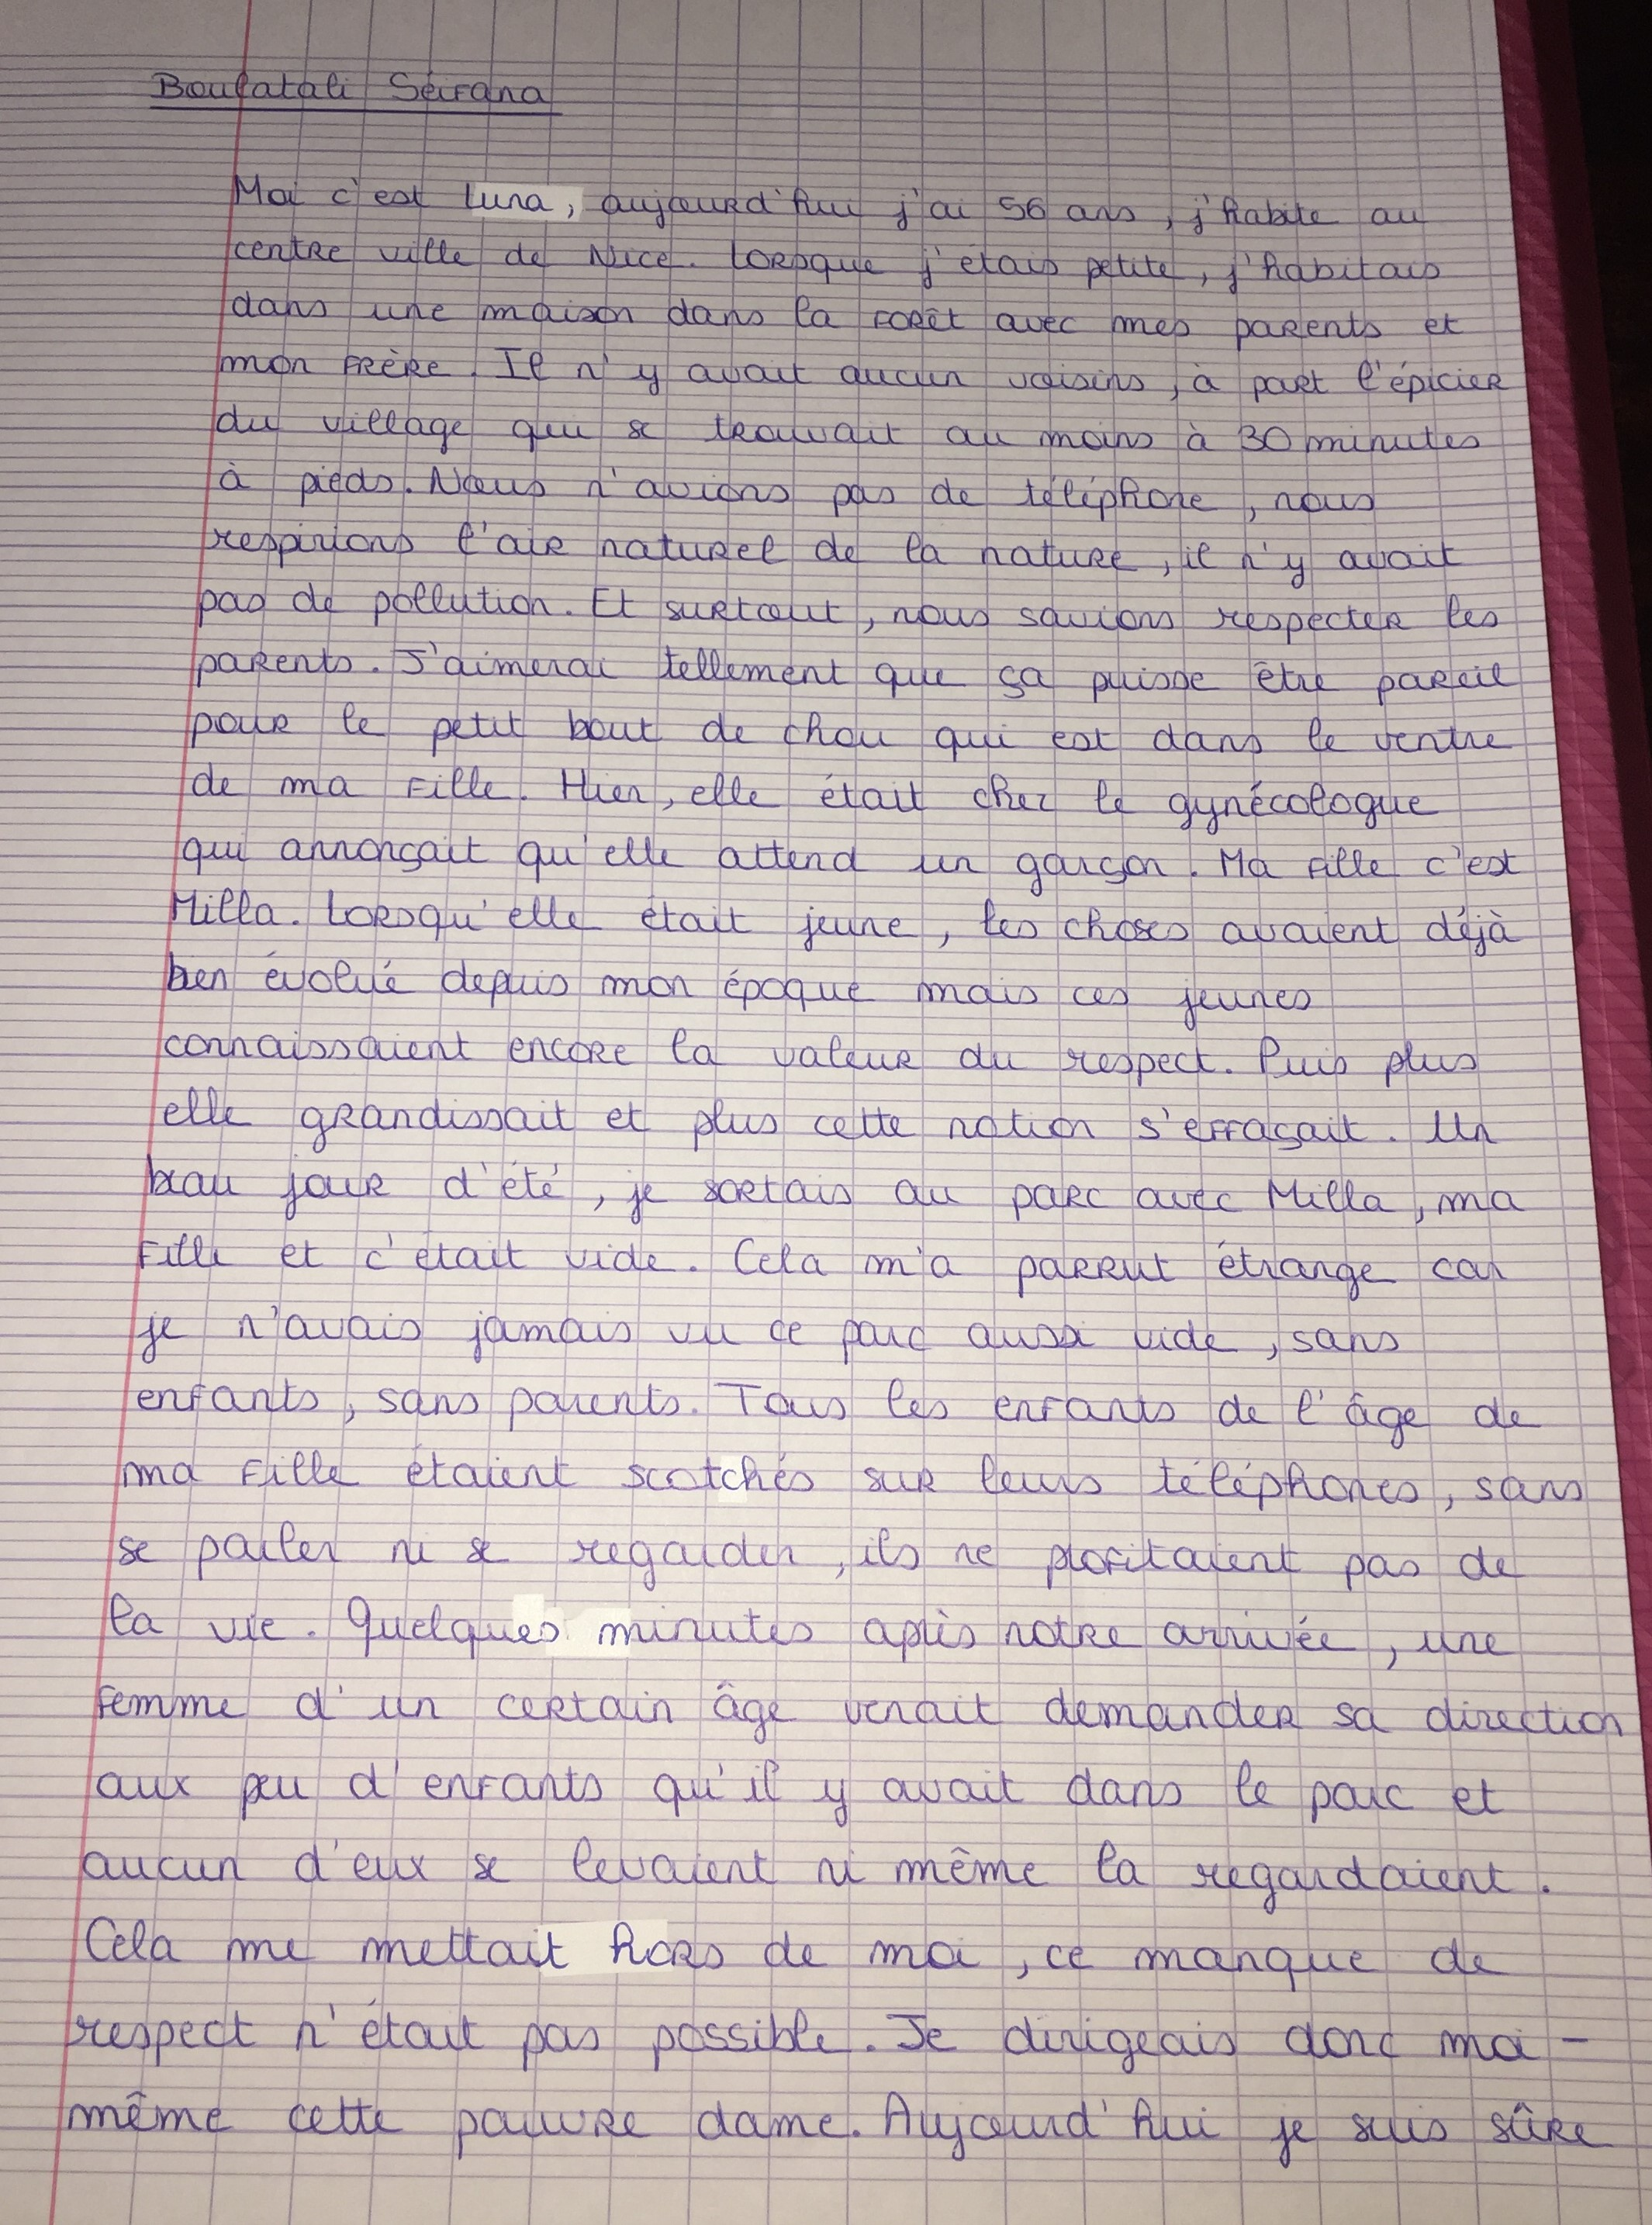 Boulatali Séirana
Moi c'est Luna, aujourd'hui j'ai 56 ans, j'habite au
centre ville de Nice. Lorsque j'étais petite, j'habitais
dans une maison dans la forêt avec mes parents et
mon frère. Il n'y avait aucun voisins, à part l'épicier
du village qui se trouvait au moins à 30 minutes
à pieds. Nous n'avions pas de téléphone, nous
respirions l'air naturel de la nature, il n'y avait
pas de pollution. Et surtout, nous savions respecter les
parents. J'aimerai tellement que ça puisse être pareil
pour le petit bout de chou qui est dans le ventre
de ma fille. Hier, elle était chez le gynécologue
qui annonçait qu'elle attend un garçon. Ma fille c'est
Milla. Lorsqu'elle était jeune, les choses avaient déjà
bien évolué depuis mon époque mais ces jeunes
connaissaient encore la valeur du respect. Puis plus
elle grandissait et plus cette notion s'effaçait. Un
beau jour d'été, je sortais au parc avec Milla, ma
fille et c'était vide. Cela m'a parrut étrange car
je n'avais jamais vu ce parc aussi vide, sans
enfants, sans parents. Tous les enfants de l'âge de
ma fille étaient scotchés sur leurs téléphones, sans
se parler ni se regarder, ils ne profitaient pas de
la vie. Quelques minutes après notre arrivée, une
femme d'un certain âge venait demander sa direction
aux peu d'enfants qu'il y avait dans le parc et
aucun d'eux se levaient ni même la regardaient.
Cela me mettait hors de moi, ce manque de
respect n'était pas possible. Je dirigeais donc moi-
même cette pauvre dame. Aujourd'hui je suis sûre